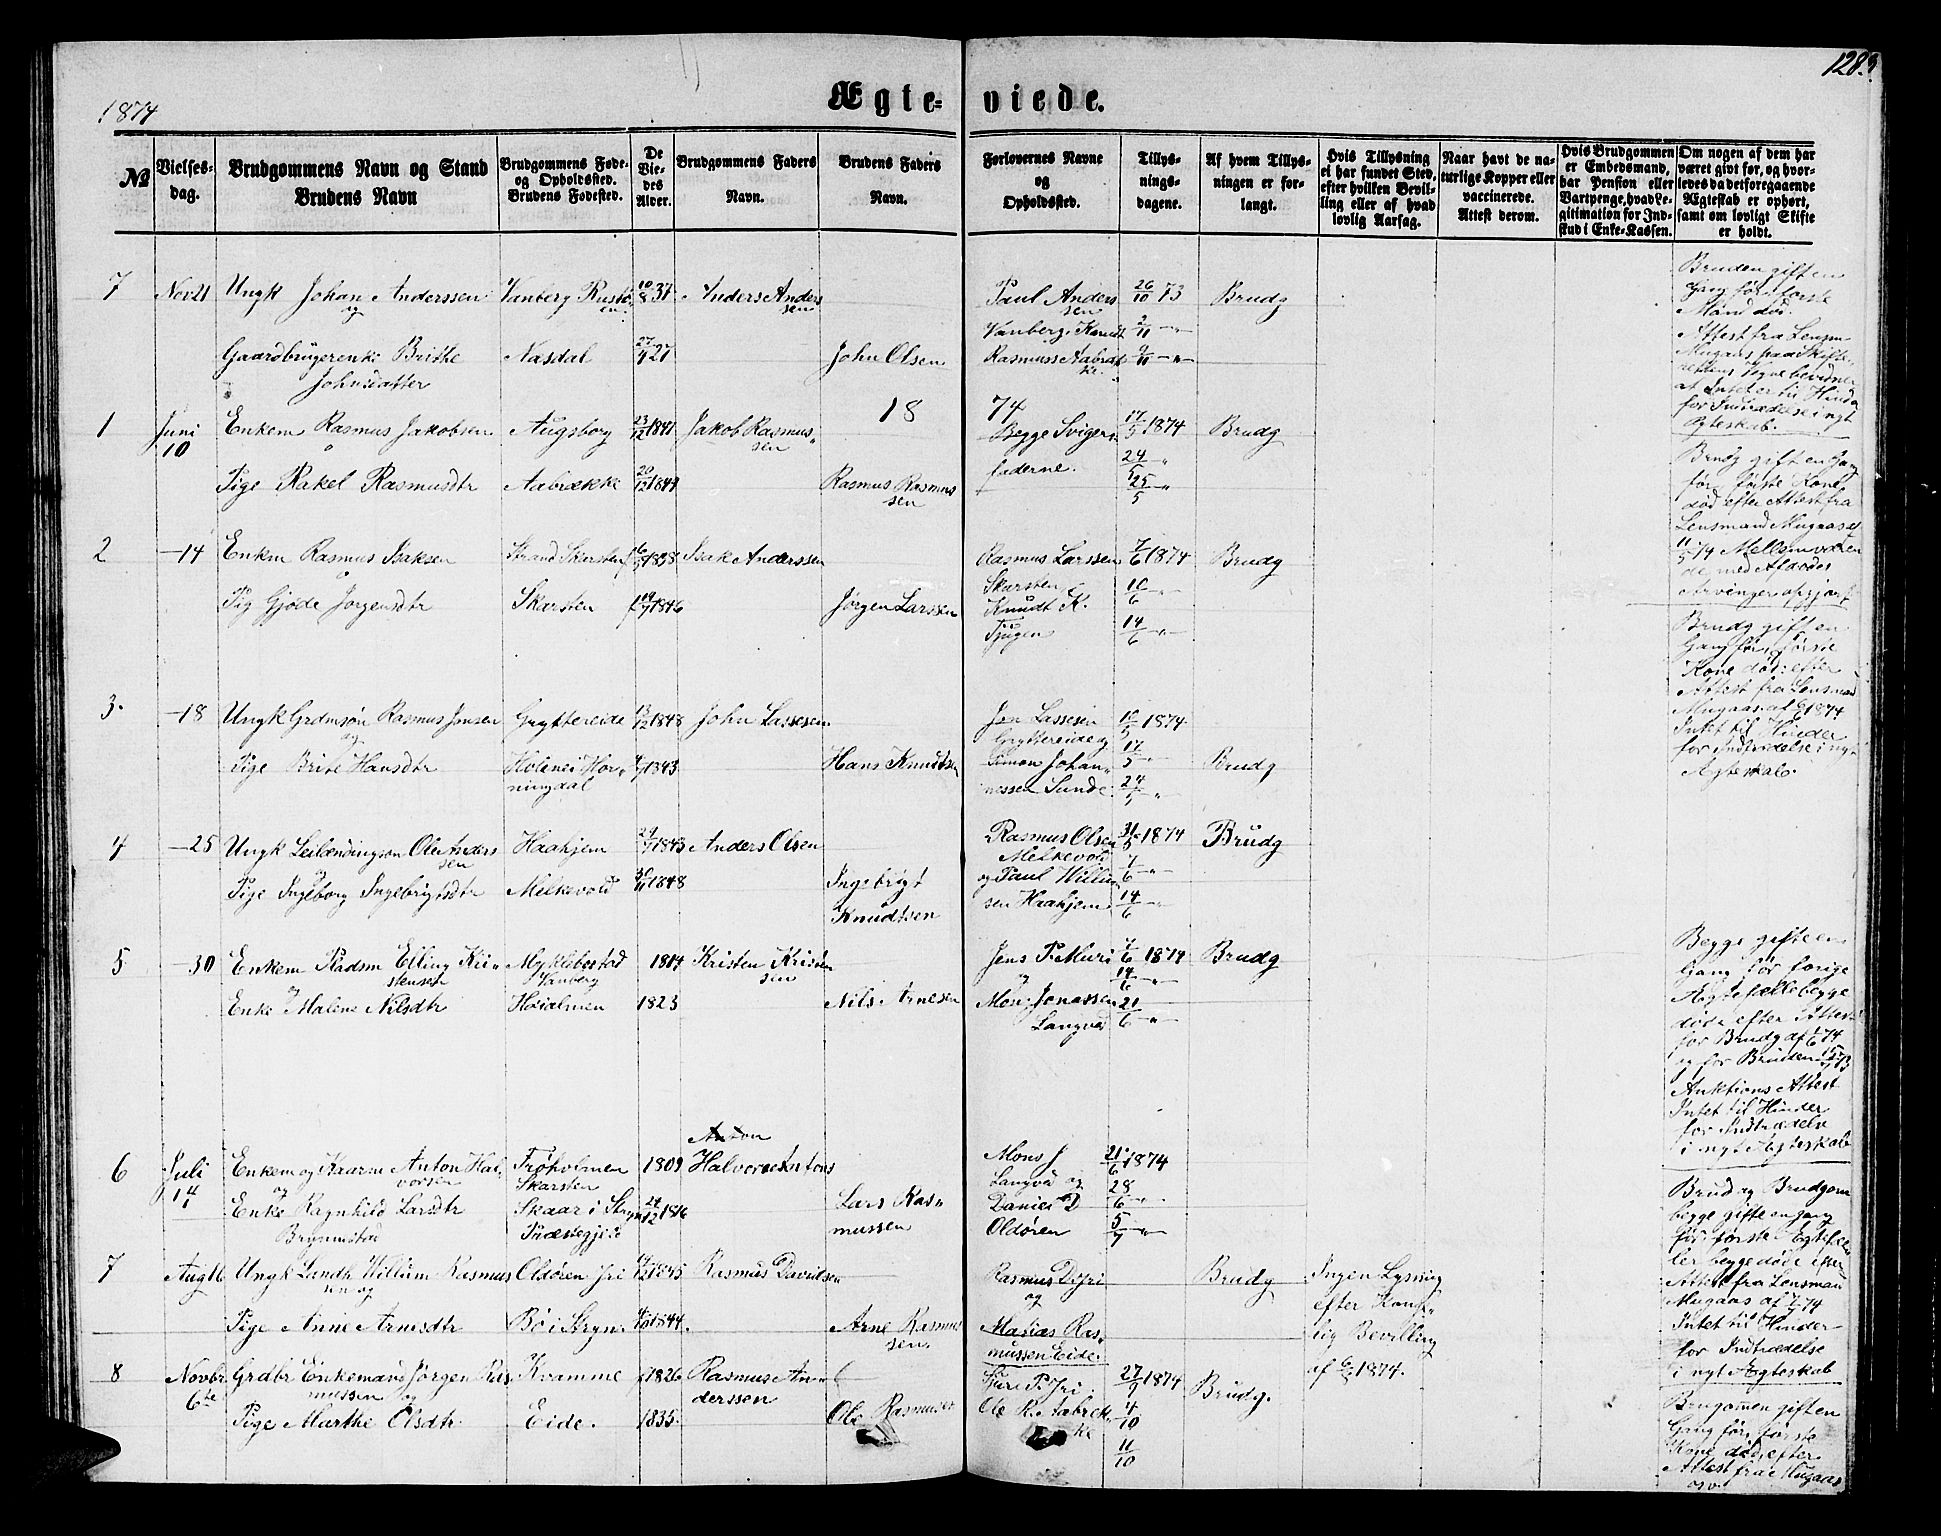 1874
128.
Ægte-viede.
№
Vielses-
dag.
Brudgommens Navn og Stand
Brudens Navn
Brudgommens Føde-
og Opholdssted.
Brudens Fødested.
De
Vie-
des
Alder.
Brudgommens Faders
Navn.
Brudens Faders
Navn.
Forlovernes Navne
og
Opholdssted.
Tillys-
nings-
dagene.
Af hvem Tillys-
ningen er for-
langt.
Hvis Tillysning
ei har fundet Sted,
efter hvilken Bevil-
ling eller af hvad
lovlig Aarsag.
Naar havt de na-
turlige Kopper eller
vaccinerede.
Attest derom.
Hvis Brudgommen
er Embedsmand,
har Pension eller
Vartpenge, hvad Le-
gitimation for Ind-
skud i Enke-Kassen.
Om nogen af dem har
været gift før, og hvor-
ledes da det foregaaende
Ægteskab er ophørt,
samt om lovligt Skifte
er holdt.
7
Nov 21
Ungk Johan Anderssen
og
Gaardbrugerenke Brithe
Johnsdatter
Vanberg Rustø
en
Nasdal
10/8 37
27/9 27
Anders Anders
sen
John Olsen
Paul Anders
sen
Vanberg, Knudt
Rasmusse Aabræk
ke.
26/10 73
2/11 – "
9/11 – "
Brudg
Bruden gift en
Gang før, første
Mand død.
Attest fra Lensm
Mugaas paa Skifte-
rettens Vegne bevidner
at Intet er til Hinder
for Indtrædelse i nyt
Ægteskab.
1874
1
Juni
10
Enkem Rasmus Jakobsen
o
Pige Rakel Rasmusdtr
Augsborg
Aabrække
23/12 1841
20/12 1844
Jakob Rasmus-
sen
Rasmus Rasmus
sen
Begge Sviger-
fæderne.
17/5 1874
24/5 "
25/5 – "
Brudg
Brudg gift en Gang
før, første Kone
død efter Attest fra
Lensmand Mugaas af
11/5 74 Mellemværen
de med Afdødes
Arvinger opgjort
2
– 14
Enkm Rasmus Isaksen
o
Pig Gjøde Jørgensdtr
Strand Skarsten
Skarsten
1838
1846
Isak Anderssen
Jørgen Larssen
Rasmus Larssen
Skarsten &
Knudt K.
Tjugen
7/6 1874
10/6 – "
14/6 – "
Brudg
Brudg gift en
Gang før, første
Kone død: efter
Attest fra Lensmd
Mugaas af 1874
Intet til Hinder
for Indtrædelse i nyt
Ægteskab.
3.
– 18
Ungk Grdmsøn Rasmus Jonsen
og
Pige Brite Hansdtr
Gryttereide
Holene i Hor-
ningdal
13/12 1848
1843
John Lassesen
Hans Knudtsen
Jon Lassesen
Gryttereide og
Simon Johan-
nessen Sunde
10/5 1874
17/5 – "
24/5 – "
Brudg
4
– 25
Ungk Leilændingsøn Ole Anders
sen
Pige Ingeborg Ingebrigtsdtr
Haahjem
Melkevold
1843
1848
Anders Olsen
Ingebrigt
Knudtsen
Rasmus Olsen
Melkevold
og Paul Willum
sen Haahjem
31/5 1874
7/6 – "
14/6 – "
Brudg
5
– 30
Enkem Pladsm Elling Kri-
stensen
og
Enke Malene Nilsdtr
Myklebostad
Vanberg
Hoialmen
1814
1823
Kristen Kristen
sen
Nils Arnesen
Jens P. Muri
og
Mons Jonassen
Langvad
7/6 1874
14/6 – "
21/6 – "
Brudg
Begge gifte en
Gang før forige
Ægtefælle begge
døde efter Attest
for Brudg af 1/6 74
og for Bruden 73
Auktions Attest
Intet til Hinder
for Indtrædelse
i nyt Ægteskab
6
Juli
14
Enkem og Kaarm Anton Hal-
vorsen
og
Enke Ragnhild Larsdtr
Brynnestad
Froholmen
Skarsten
Skaar i Stryn
Præstegjeld
1809
24/12 1816
Anton
Halvor Antons
Lars Ras-
mussen
Mons J
Langvad og
Daniel D
Oldøren
21/6 1874
28/6 – "
5/7 – "
Brud og Brudgom
begge gifte en gang
før første Ægtefæl-
ler begge døde efter
Attest fra Lensman
Mugaas af 7/7 74
Intet til Hinder
for Indtrædelse
i nyt Ægteskab
7
Aug 16
Ungk Landh Willum Rasmus
sen og
Pige Anne Arnesdtr
Oldøren Jri
Bø i Stryn.
1845
1844.
Rasmus Davidsen
Arne Rasmus
sen.
Rasmus D. Jri
og
Matias Ras-
mussen Eide.
Brudg
Ingen Lysning
efter Konge-
lig Bevilling
af 6/8 1874.
8
Novbr
6te
Grdbr Enkemand Jørgen Ras-
mussen og
Pige Marthe Olsdtr
Kvamme
Eide.
1826
1835.
Rasmus An-
derssen
Ole Rasmuse
Sture P. Jri
Ole R. Aabræk-
ke
27/9 1874
4/10
11/10
Brudg.
Brugomen gift en
Gang før, første
Kone død, efter
Attest fra Mugaas
osv.